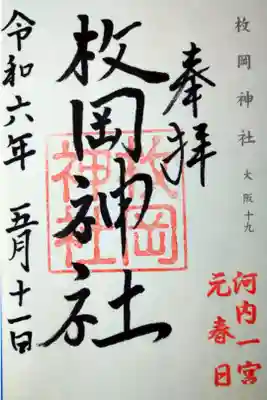 枚岡神社 大阪十九
奉拝
河内一宮
元春日
枚岡神社
枚岡
神社
令和六年 五月十一日